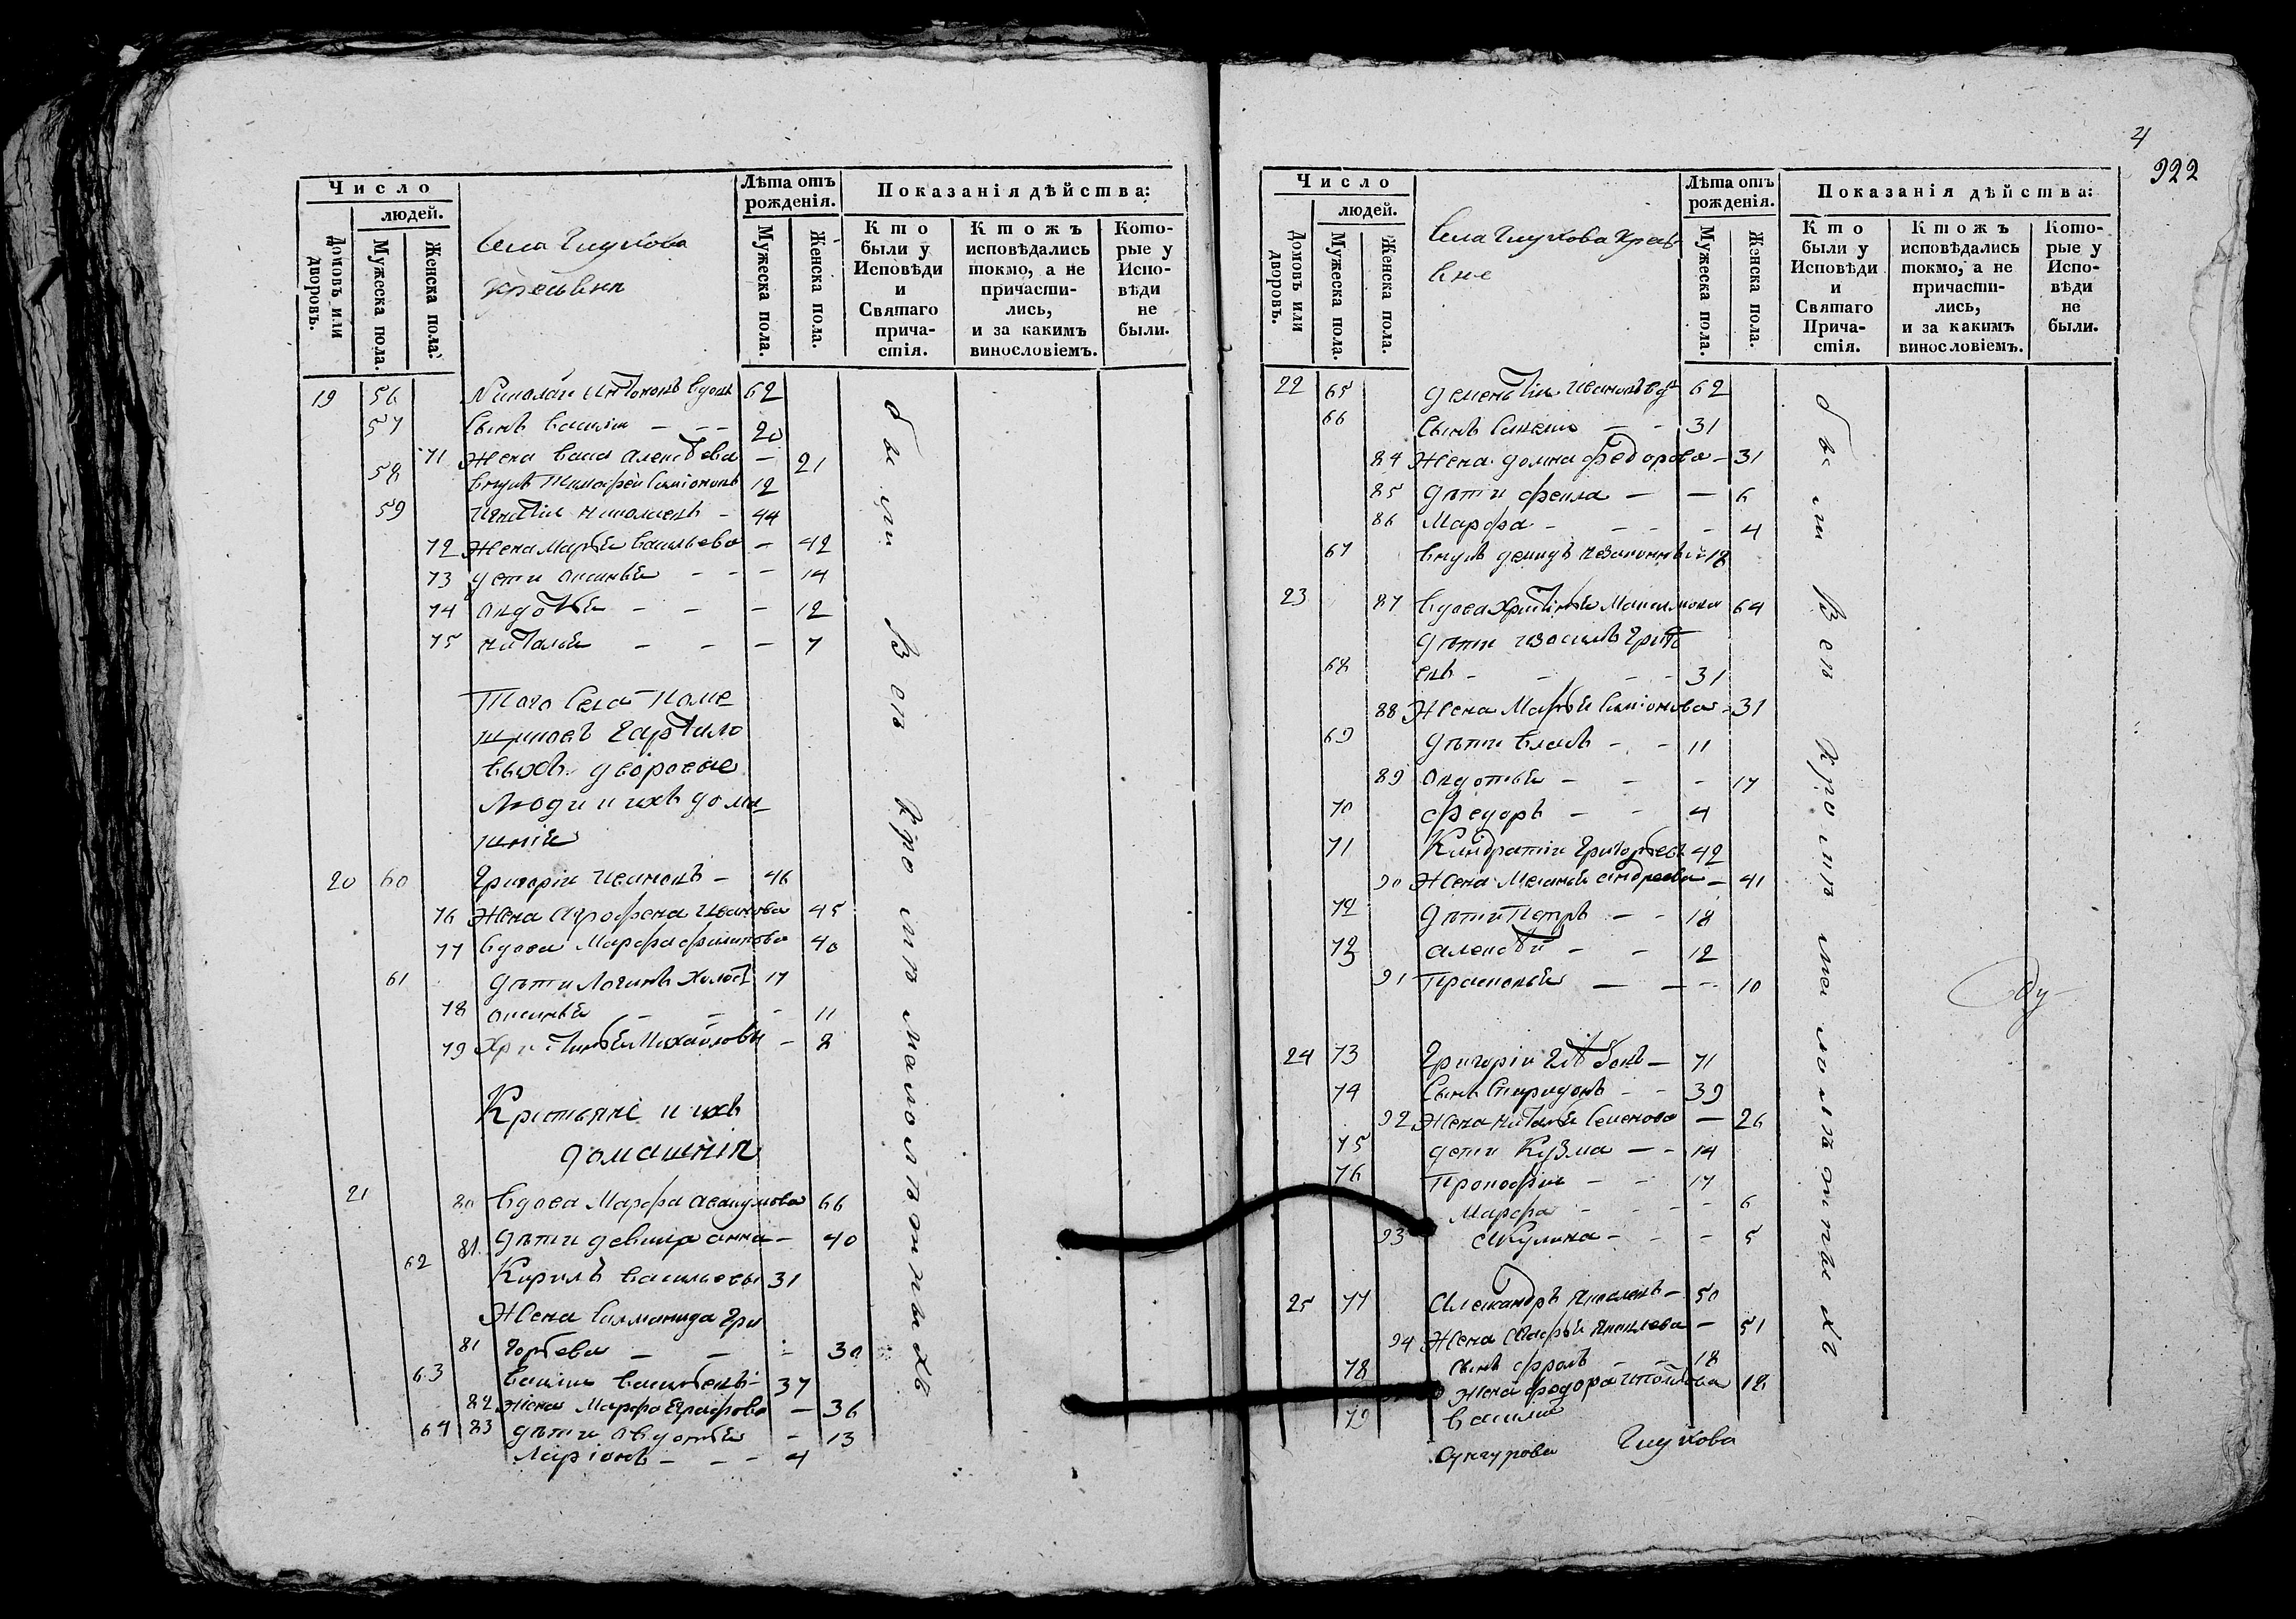 Число
людей.
Домовъ или дворовъ.
Мужеска пола.
Женска пола.
Села Глухова
Лѣта отъ рожденія.
Мужеска пола.
Женска пола.
Показанія дѣйства:
Кто были у Исповѣди и Святаго причастія.
Ктожъ исповѣдались токмо, а не причастились, и за какимъ винословіемъ.
Которые у Исповѣди не были.
19 56 Николай Антоновъ вдовъ 62
57 Сынъ Василий - - - 20
71 Жена Васса Алексѣева - 21
58 Внукъ Тимофей Симіоновъ 12
59 Николаевъ - 44
72 Жена Марѳья Васильева - 42
73 дети Аксинья - - - 14
74 Авдотья - - - 12
75 Наталья - - - 7
Того Села поме
щиковъ
выхъ дворовые
Люди и ихъ дома
шнія
20 60 Григорій Ивановъ - 46
76 Жена Аграфена Иванова 45
77 Вдова Марфа Филипова 40
61 дѣти Логинъ Холостъ 17
78 Аксинья - - - 11
79 Христинья Михайлова - 8
Крестьяне и ихъ
домашнія
21 80 Вдова Марфа Авакумова 66
81 дѣти девица Анна - 40
62 Кирилъ Васильевъ 31
Жена Саломанида Гри
81 горьева - - - 30
63 Василий Васильевъ - 37
82 Жена Марфа Евграфова - 36
83 дѣти Авдотья - 13
64 Ларіонъ - - - 4
были всѣ кромѣ малолѣтныхъ
4
922
Число
людей.
Домовъ или дворовъ.
Мужеска пола.
Женска пола.
Села Глухова Крестьяне
Лѣта отъ рожденія.
Мужеска пола.
Женска пола.
Показанія дѣйства:
Кто были у Исповѣди и Святаго Причастія.
Ктожъ исповѣдались токмо, а не причастились, и за какимъ винословіемъ.
Которые у Исповѣди не были.
22 65 Дементій Ивановъ вд 62
66 Сынъ - - 31
84 Жена Домна Федорова - 31
85 дѣти Фекла - - 6
86 Марфа - - - - 4
67 Внукъ Демидъ 18
23 87 Вдова Христинья Максимова 64
дѣти Григорь
68 евъ - - - - 31
88 Жена Марѳья Симіонова - 31
69 дѣти Власъ - - 11
89 Авдотья - - - 17
70 Федоръ - - 4
71 Киндратій Григорьевъ 42
90 Жена Меланья Андреева - 41
72 дѣти Петръ - - 18
73 Алексѣй - - 12
91 Прасковья - - - 10
24 73 Григорій Глѣбовъ - 71
74 Сынъ Спиридонъ - - 39
92 Жена Наталья Семенова - 26
75 дети Кузма - - 14
76 Прокофий - - 17
Марфа - - - - 6
93 Акулина - - - 5
25 77 Александръ Яковлевъ - 50
94 Жена Марѳья Яковлева - 51
78 Сынъ Фролъ - - 18
Жена Федора 18
79 Василий
были всѣ кромѣ малолѣтныхъ
Глухова